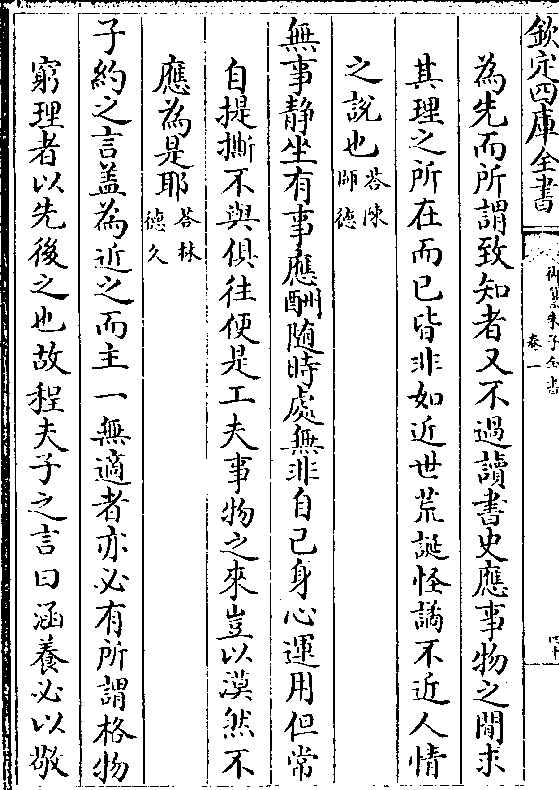 欽定四庫全書
御纂朱子全書
卷一
四十
為先而所謂致知者又不過讀書史應事物之間求
其理之所在而已皆非如近世荒誕怪譎不近人情
之說也答陳師德
無事静坐有事應酬隨時處無非自己身心運用但常
自提撕不與俱往便是工夫事物之來豈以漠然不
應為是耶答林德久
子約之言蓋為近之而主一無適者亦必有所謂格物
窮理者以先後之也故程夫子之言曰涵養必以敬